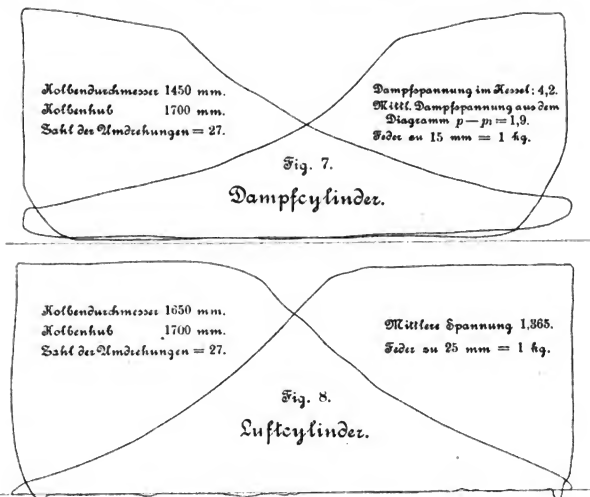 Kolbendurchmesser 1450 mm.
Kolbenhub 1700 mm.
Zahl der Umdrehungen = 27.
Dampfspannung im Kessel: 4,2.
Mittl. Dampfspannung aus dem
Diagramm p — p₁ = 1,9.
Feder zu 15 mm = 1 kg.
Fig. 7.
Dampfcylinder.
Kolbendurchmesser 1650 mm.
Kolbenhub 1700 mm.
Zahl der Umdrehungen = 27.
Mittlere Spannung 1,365.
Feder zu 25 mm = 1 kg.
Fig. 8.
Luftcylinder.